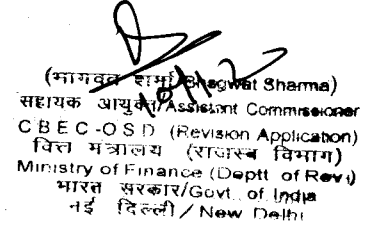 (भागवत शर्मा/Bhagwat Sharma)
सहायक आयुक्त/Assistant Commissioner
CBEC-OSD (Revision Application)
वित्त मंत्रालय (राजस्व विभाग)
Ministry of Finance (Deptt of Rev.)
भारत सरकार/Govt. of India
नई दिल्ली/New Delhi